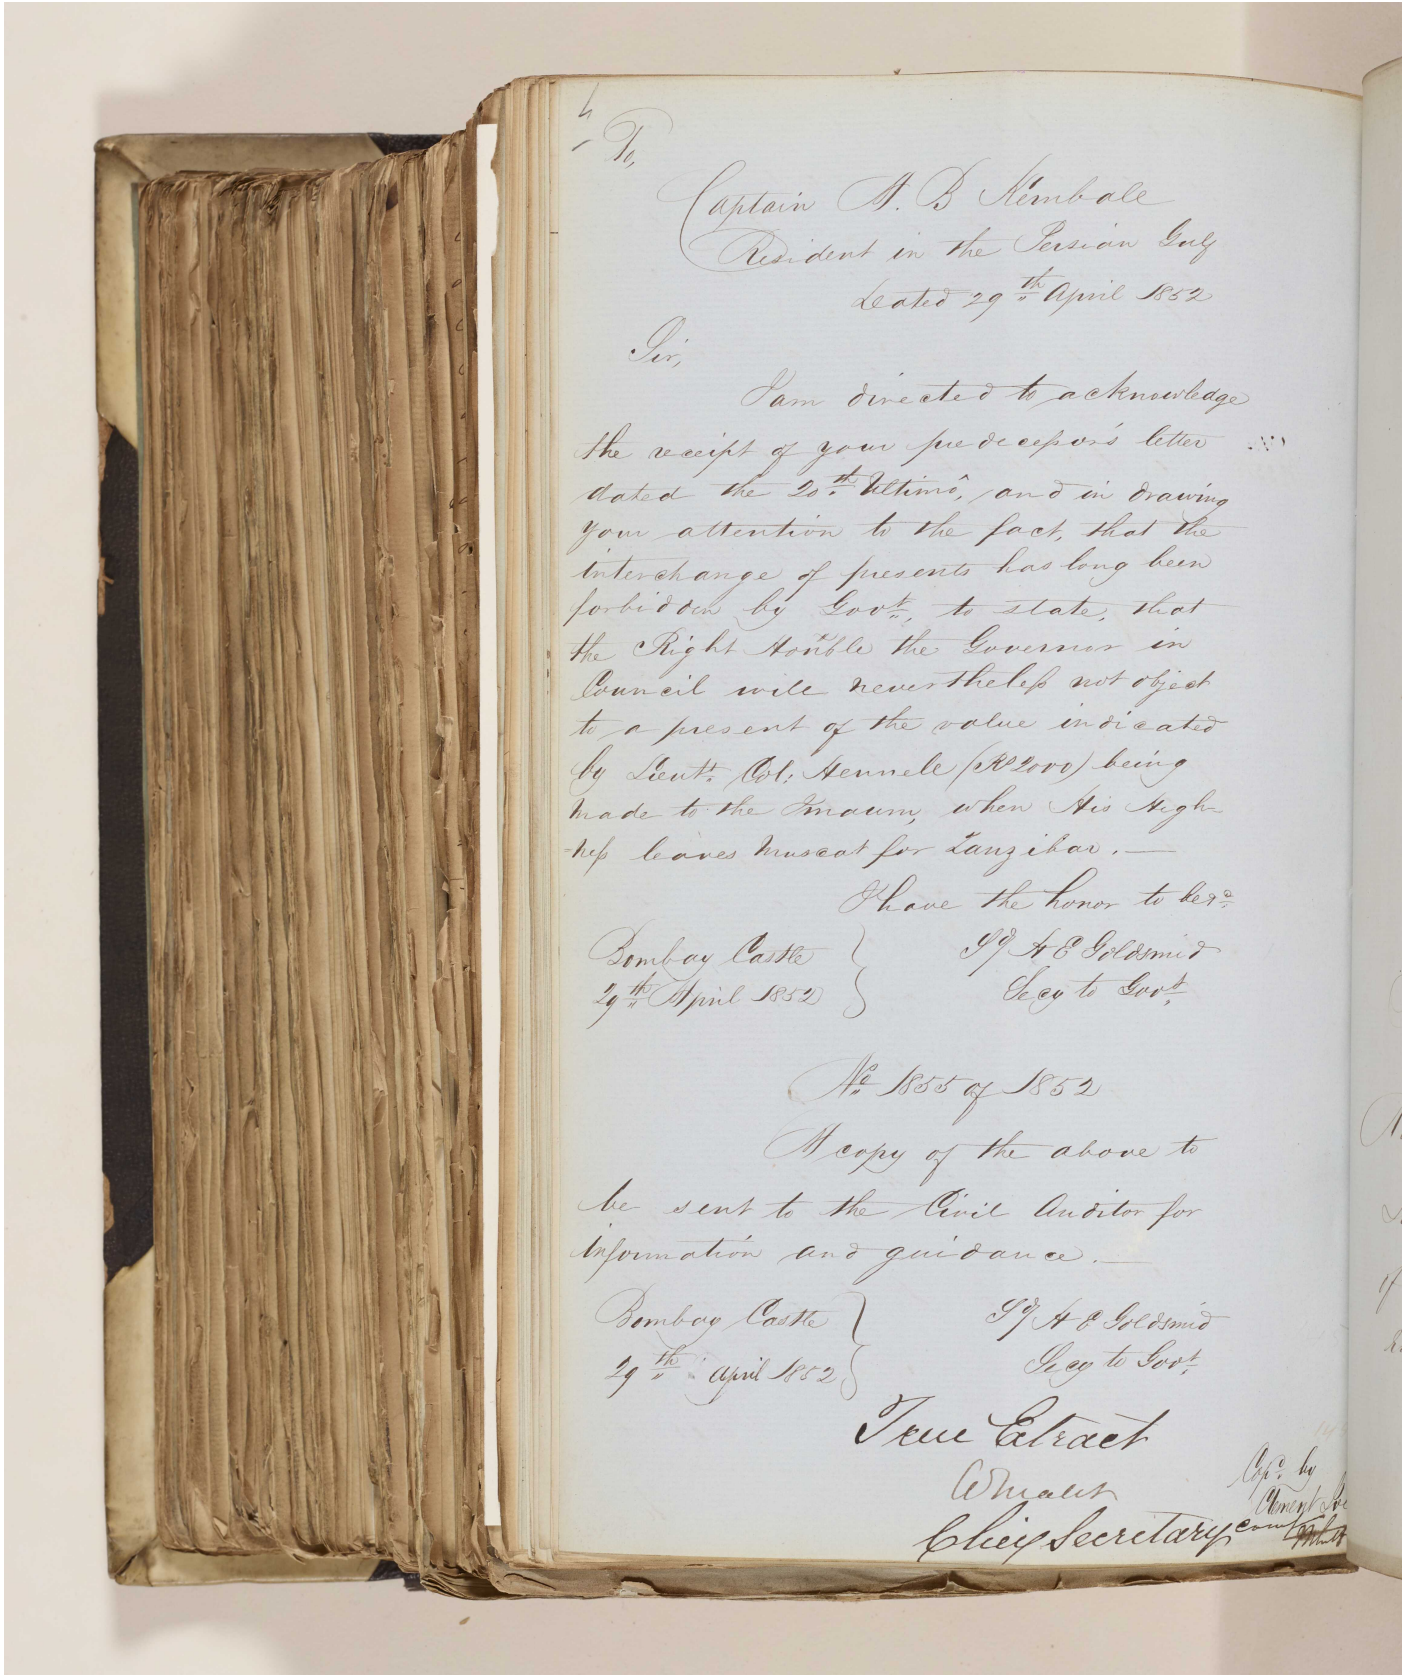 4
To,
Captain A. B Kemball
Resident in the Persian Gulf
Dated 29th April 1852
Sir,
I am directed to acknowledge
the receipt of your predecessor's letter
dated the 20th Ultimô, and in drawing
your attention to the fact, that the
interchange of presents has long been
forbidden by Govt., to state, that
the Right Honble the Governor in
Council will nevertheless not object
to a present of the value indicated
by Lieut. Col: Hennell (Rs 2000) being
made to the Imaum, when His High-
-ness leaves Muscat for Zanzibar. —
I have the honor to be &ca
Bombay Castle
29th April 1852
Sd/ H E Goldsmid
Secy to Govt.
No 1855 of 1852
A copy of the above to
be sent to the Civil Auditor for
information and guidance. —
Bombay Castle
29th April 1852
Sd/ H E Goldsmid
Secy to Govt.
True Extract
A Malet
Chief Secretary
Copd. by
Clement